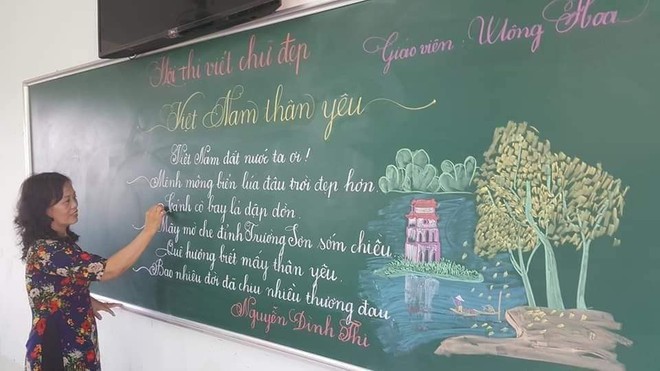 Hội thi viết chữ đẹp
Giáo viên : Mông Hoa
Việt Nam thân yêu
Việt Nam đất nước ta ơi !
Mênh mông biển lúa đâu trời đẹp hơn
Cánh cò bay lả dập dờn
Mây mờ che đỉnh Trường Sơn sớm chiều
Quê hương biết mấy thân yêu
Bao nhiêu đời đã chịu nhiều thương đau
Nguyễn Đình Thi